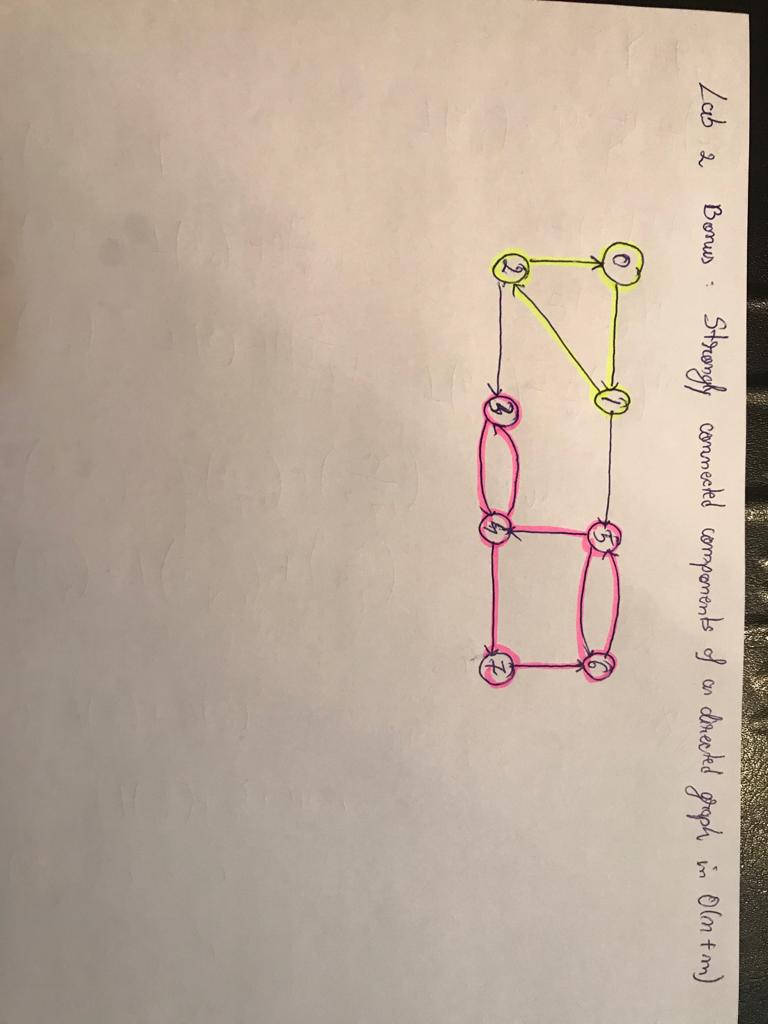 Lab 2 Bonus : Strongly connected components of an directed graph in O(n+m)
0 1 5 6
2 3 4 7